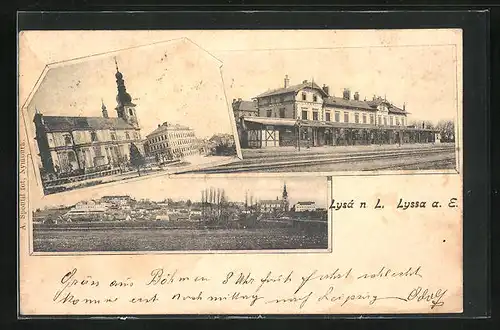 A. Spořil fot. Nymburk.
Lysá n L. Lyssa a. E.
Gruss aus Böhmen 8 Uhr früh Fahrt schlecht
Komme erst Nachmittag nach Leipzig Adolf